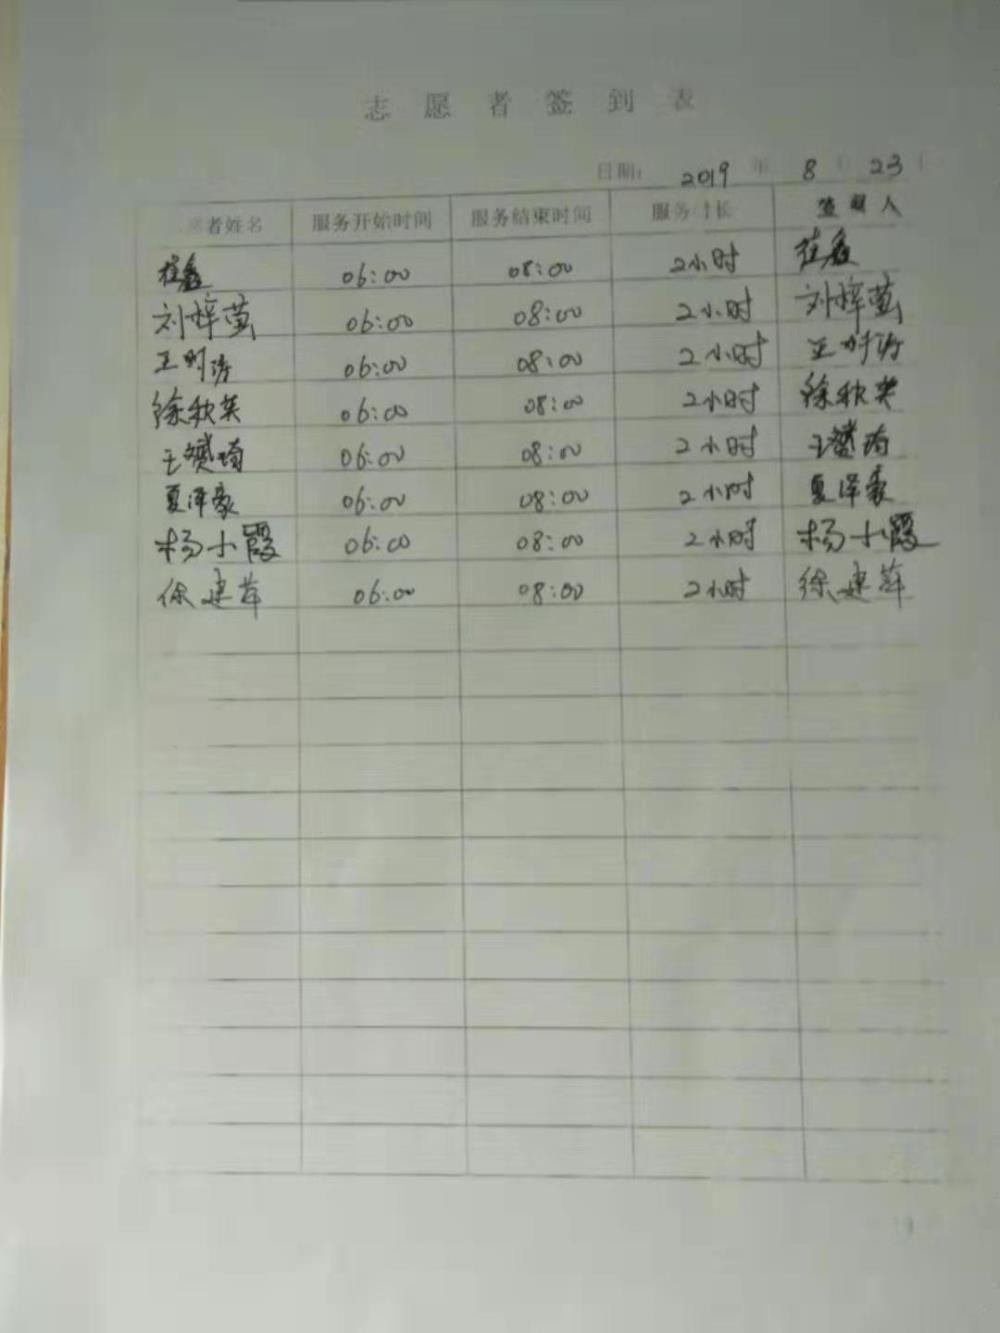 志愿者签到表
日期: 2019 年 8 23
者姓名 服务开始时间 服务结束时间 服务时长 签到人
06:00 08:00 2小时
刘梓萤 06:00 08:00 2小时 刘梓萤
王时涛 06:00 08:00 2小时 王时涛
徐秋英 06:00 08:00 2小时 徐秋英
王赟琦 06:00 08:00 2小时 王赟琦
夏泽豪 06:00 08:00 2小时 夏泽豪
杨小霞 06:00 08:00 2小时 杨小霞
徐建萍 06:00 08:00 2小时 徐建萍